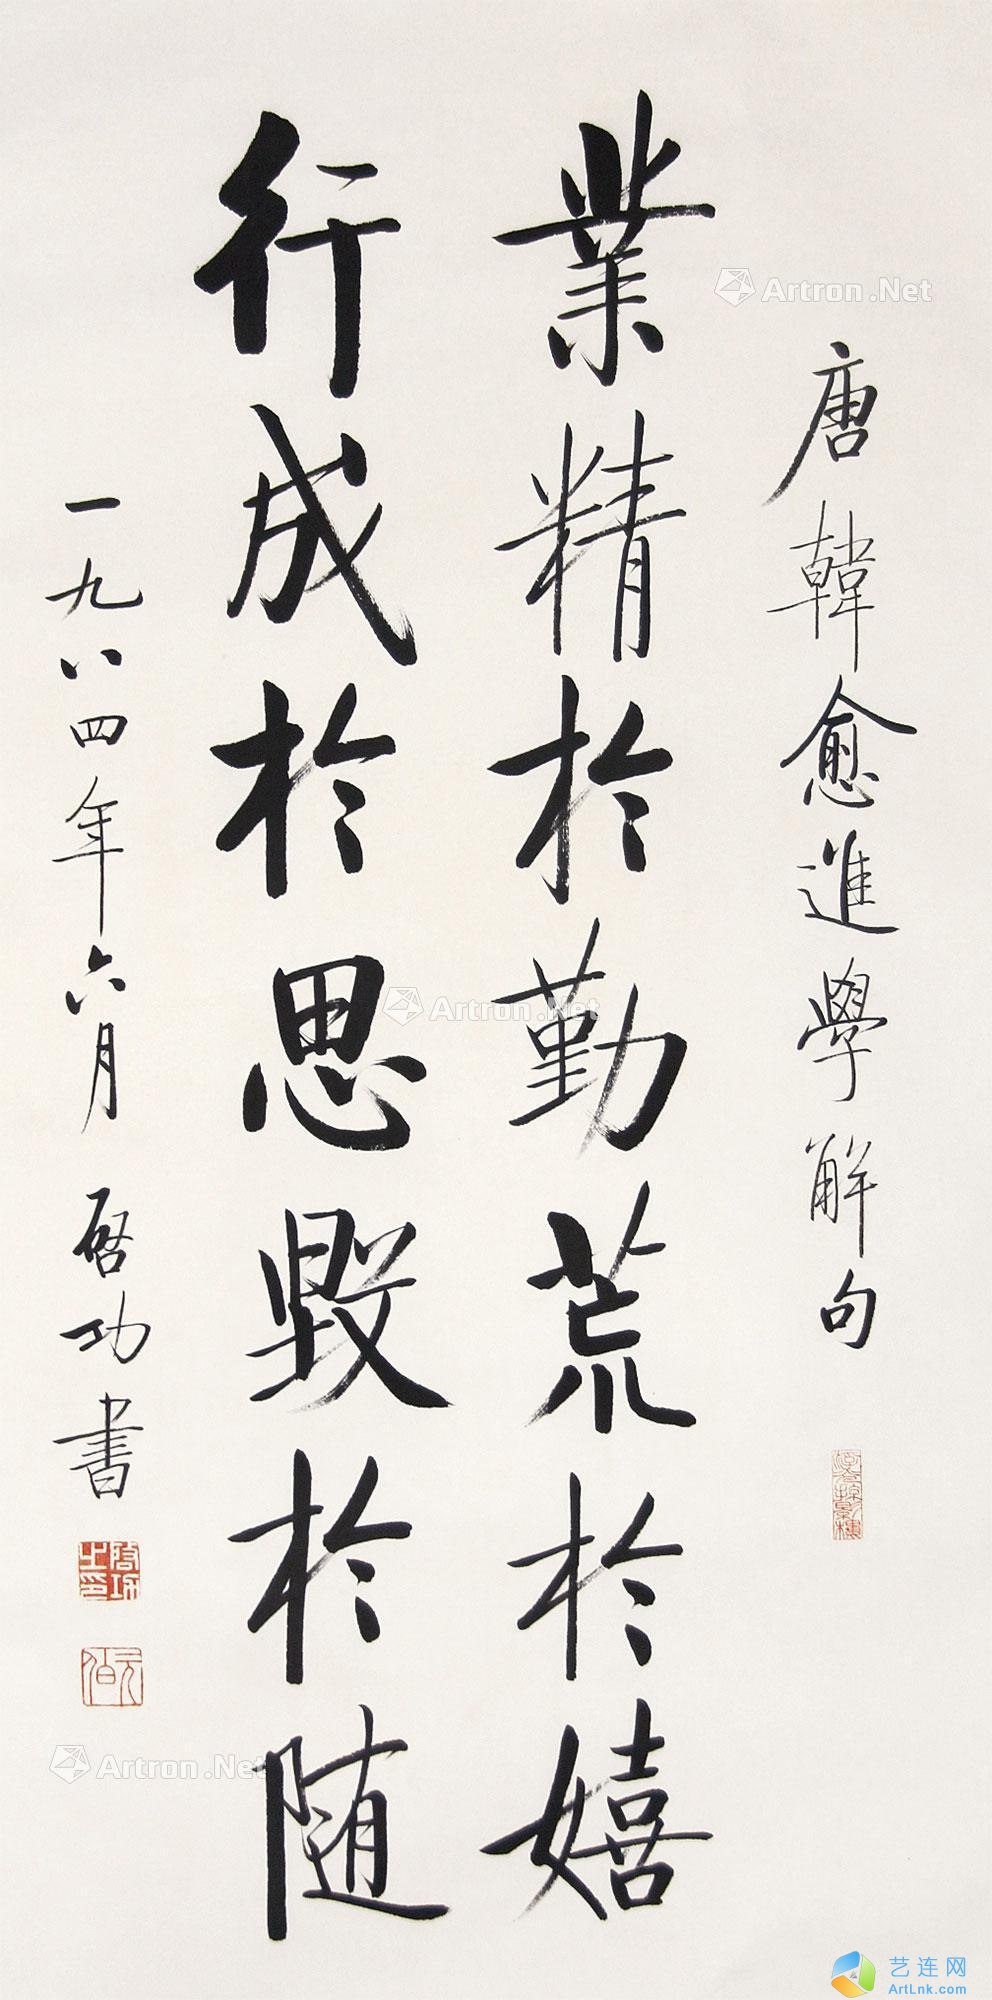 唐韓愈進學解句
業精於勤荒於嬉
行成於思毀於随
一九八四年六月 啓功書
啓功之印
元白
Artron.Net
Artron.Net
Artron.Net
艺连网
ArtLnk.com